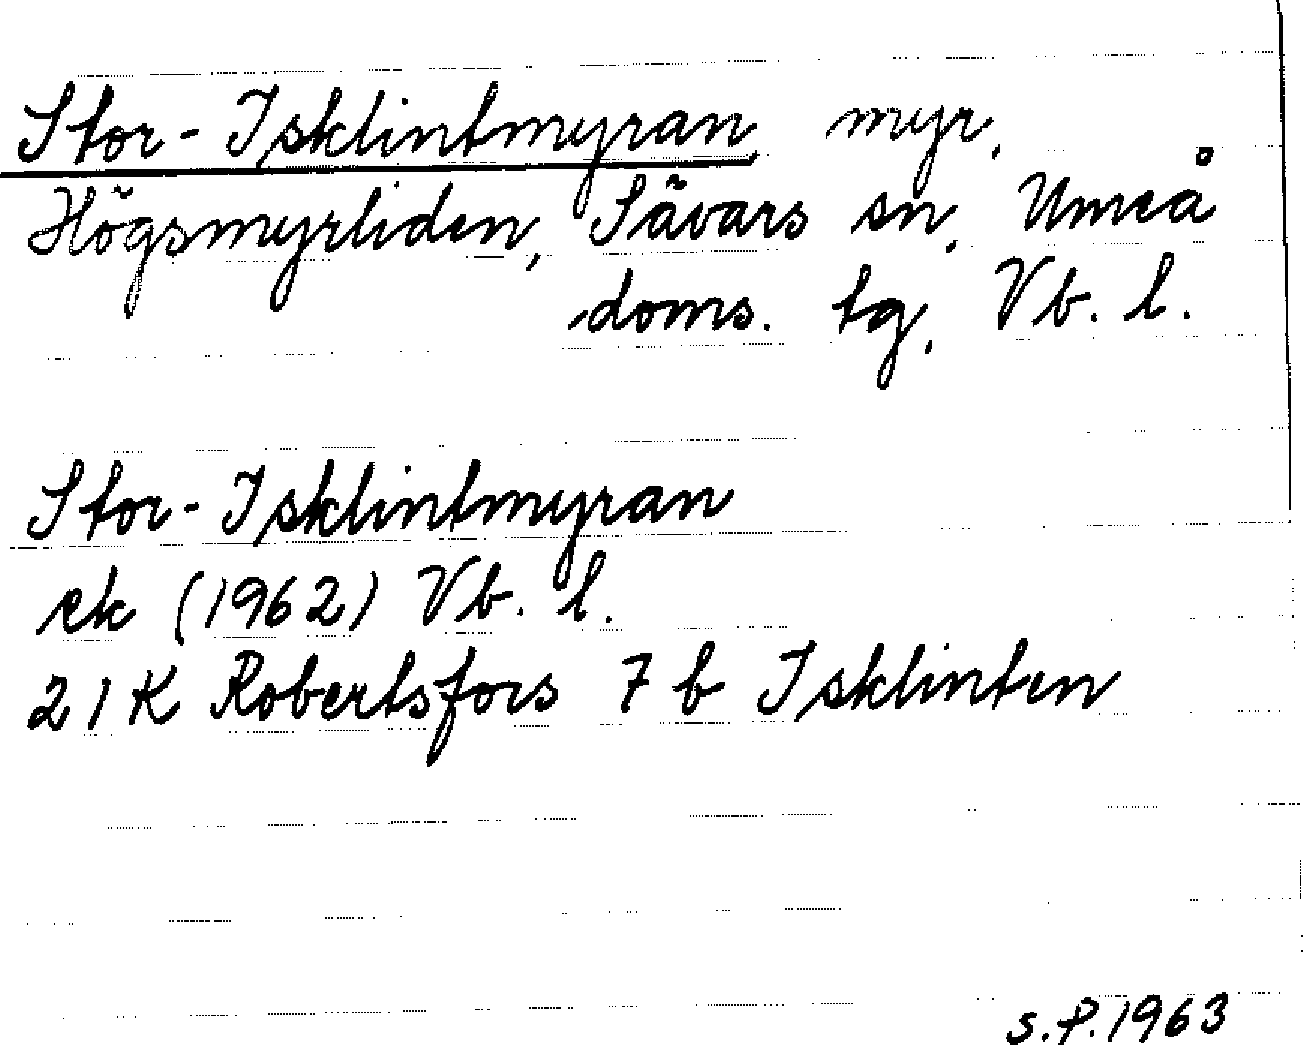 Stor-Isklintmyran, myr,
Högsmyrliden, Sävars sn, Umeå
doms. tg, Vb. l.
Stor-Isklintmyran
ek (1962) Vb. l.
21 K Robertsfors 7 b Isklinten
S.P. 1963